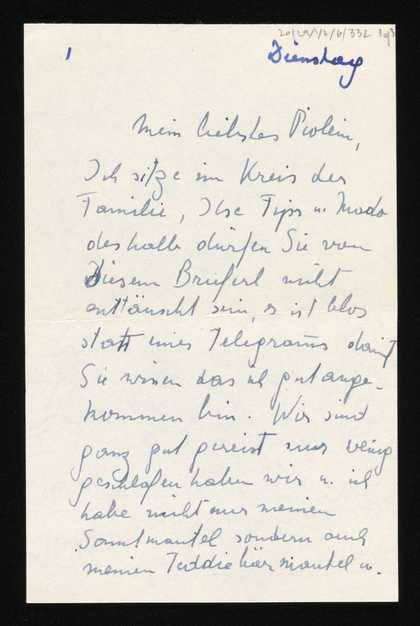 20/29/1/2/6/332 1 of 3
1
Dienstag
Mein liebstes Violein,
Ich sitze im Kreis der
Familie, Ilse Tips u. Mado
deshalb dürfen Sie von
diesem Brieferl nicht
enttäuscht sein, es ist blos
statt eines Telegrams damit
Sie wissen das ich gut ange-
kommen bin. Wir sind
ganz gut gereist nur wenig
geschlafen haben wir u. ich
habe nicht nur meinen
Samtmantel sondern auch
meinen Teddiebärmantel u.